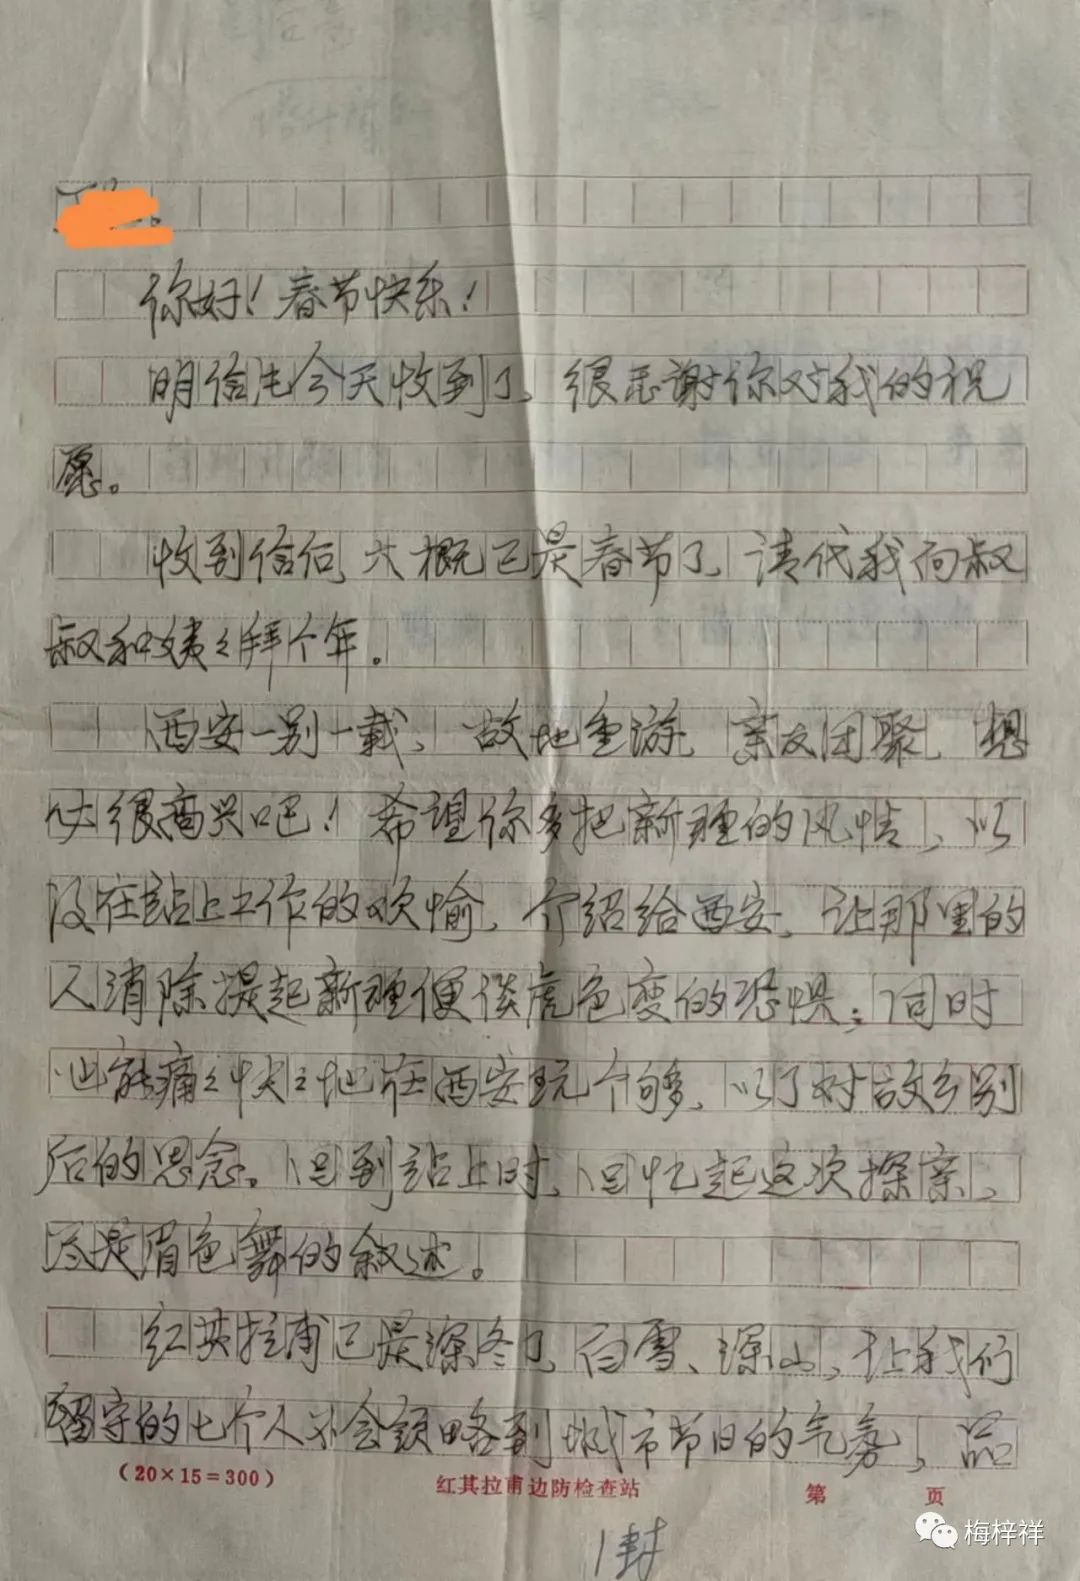 你好！春节快乐！
明信片今天收到了，很感谢你对我的祝
愿。
收到信后，大概已是春节了，请代我向叔
叔和姨姨拜个年。
西安一别一载，故地重游，亲友团聚，想
必很高兴吧！希望你多把新疆的风情，以
及在站上工作的欢愉，介绍给西安，让那里的
人消除提起新疆便谈虎色变的恐惧；同时
也能痛痛快快地在西安玩个够，以了对故乡别
后的思念。回到站上时，回忆起这次探亲，
尽是眉色舞的叙述。
红其拉甫已是深冬了，白雪、深山，让我们
留守的七个人不会领略到城市节日的气氛，品
(20×15=300) 红其拉甫边防检查站 第 页
1封
梅梓祥